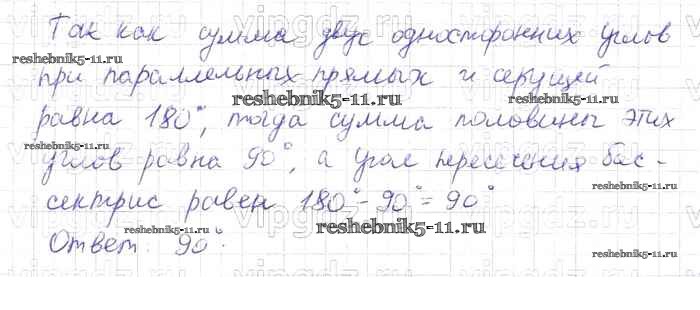 Так как сумма двух односторонних углов
при параллельных прямых и секущей
равна 180°, тогда сумма половины этих
углов равна 90°, а угол пересечения бис-
сектрис равен 180° - 90° = 90°
Ответ: 90°.
reshebnik5-11.ru
reshebnik5-11.ru
reshebnik5-11.ru
reshebnik5-11.ru
reshebnik5-11.ru
reshebnik5-11.ru
reshebnik5-11.ru
reshebnik5-11.ru